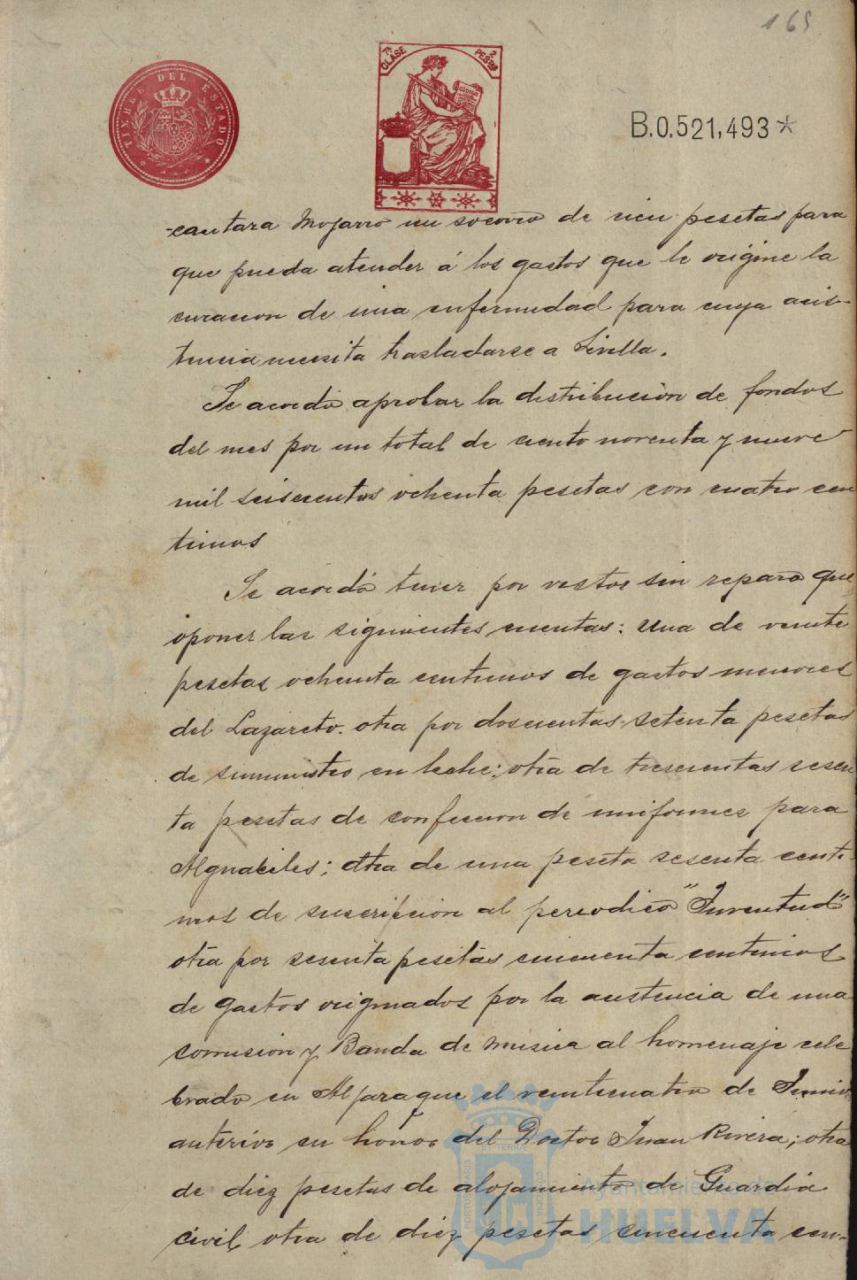 165
TIMBRE DEL ESTADO
7ª CLASE 2 PESTAS
B.0.521,493*
-cantara Mojarro un socorro de cien pesetas para
que pueda atender á los gastos que le origine la
curacion de una enfermedad para cuya asis-
tencia necesita trasladarse a Sevilla.
Se acordó aprobar la distribucion de fondos
del mes por un total de ciento noventa y nueve
mil seiscentos ochenta pesetas con cuatro cen
timos
Se acordó tener por vistos sin reparo que
oponer las siguientes cuentas: una de veinte
pesetas ochenta centimos de gastos menores
del Lazareto. otra por doscientas setenta pesetas
de suministro en leche; otra de trescientas sesen
ta pesetas de confeccion de uniformes para
Alguaciles; otra de una peseta sesenta centi-
mos de suscripción al periodico "Juventud"
otra por sesenta pesetas cincuenta centimos
de gastos originados por la asistencia de una
comision y Banda de musica al homenaje cele
brado en Aljaraque el veinticuatro de Junio
anterior en honor del Doctor Juan Rivera; otra
de diez pesetas de alojamiento de Guardia
civil otra de diez pesetas cincuenta cen-
Ayuntamiento de
HUELVA